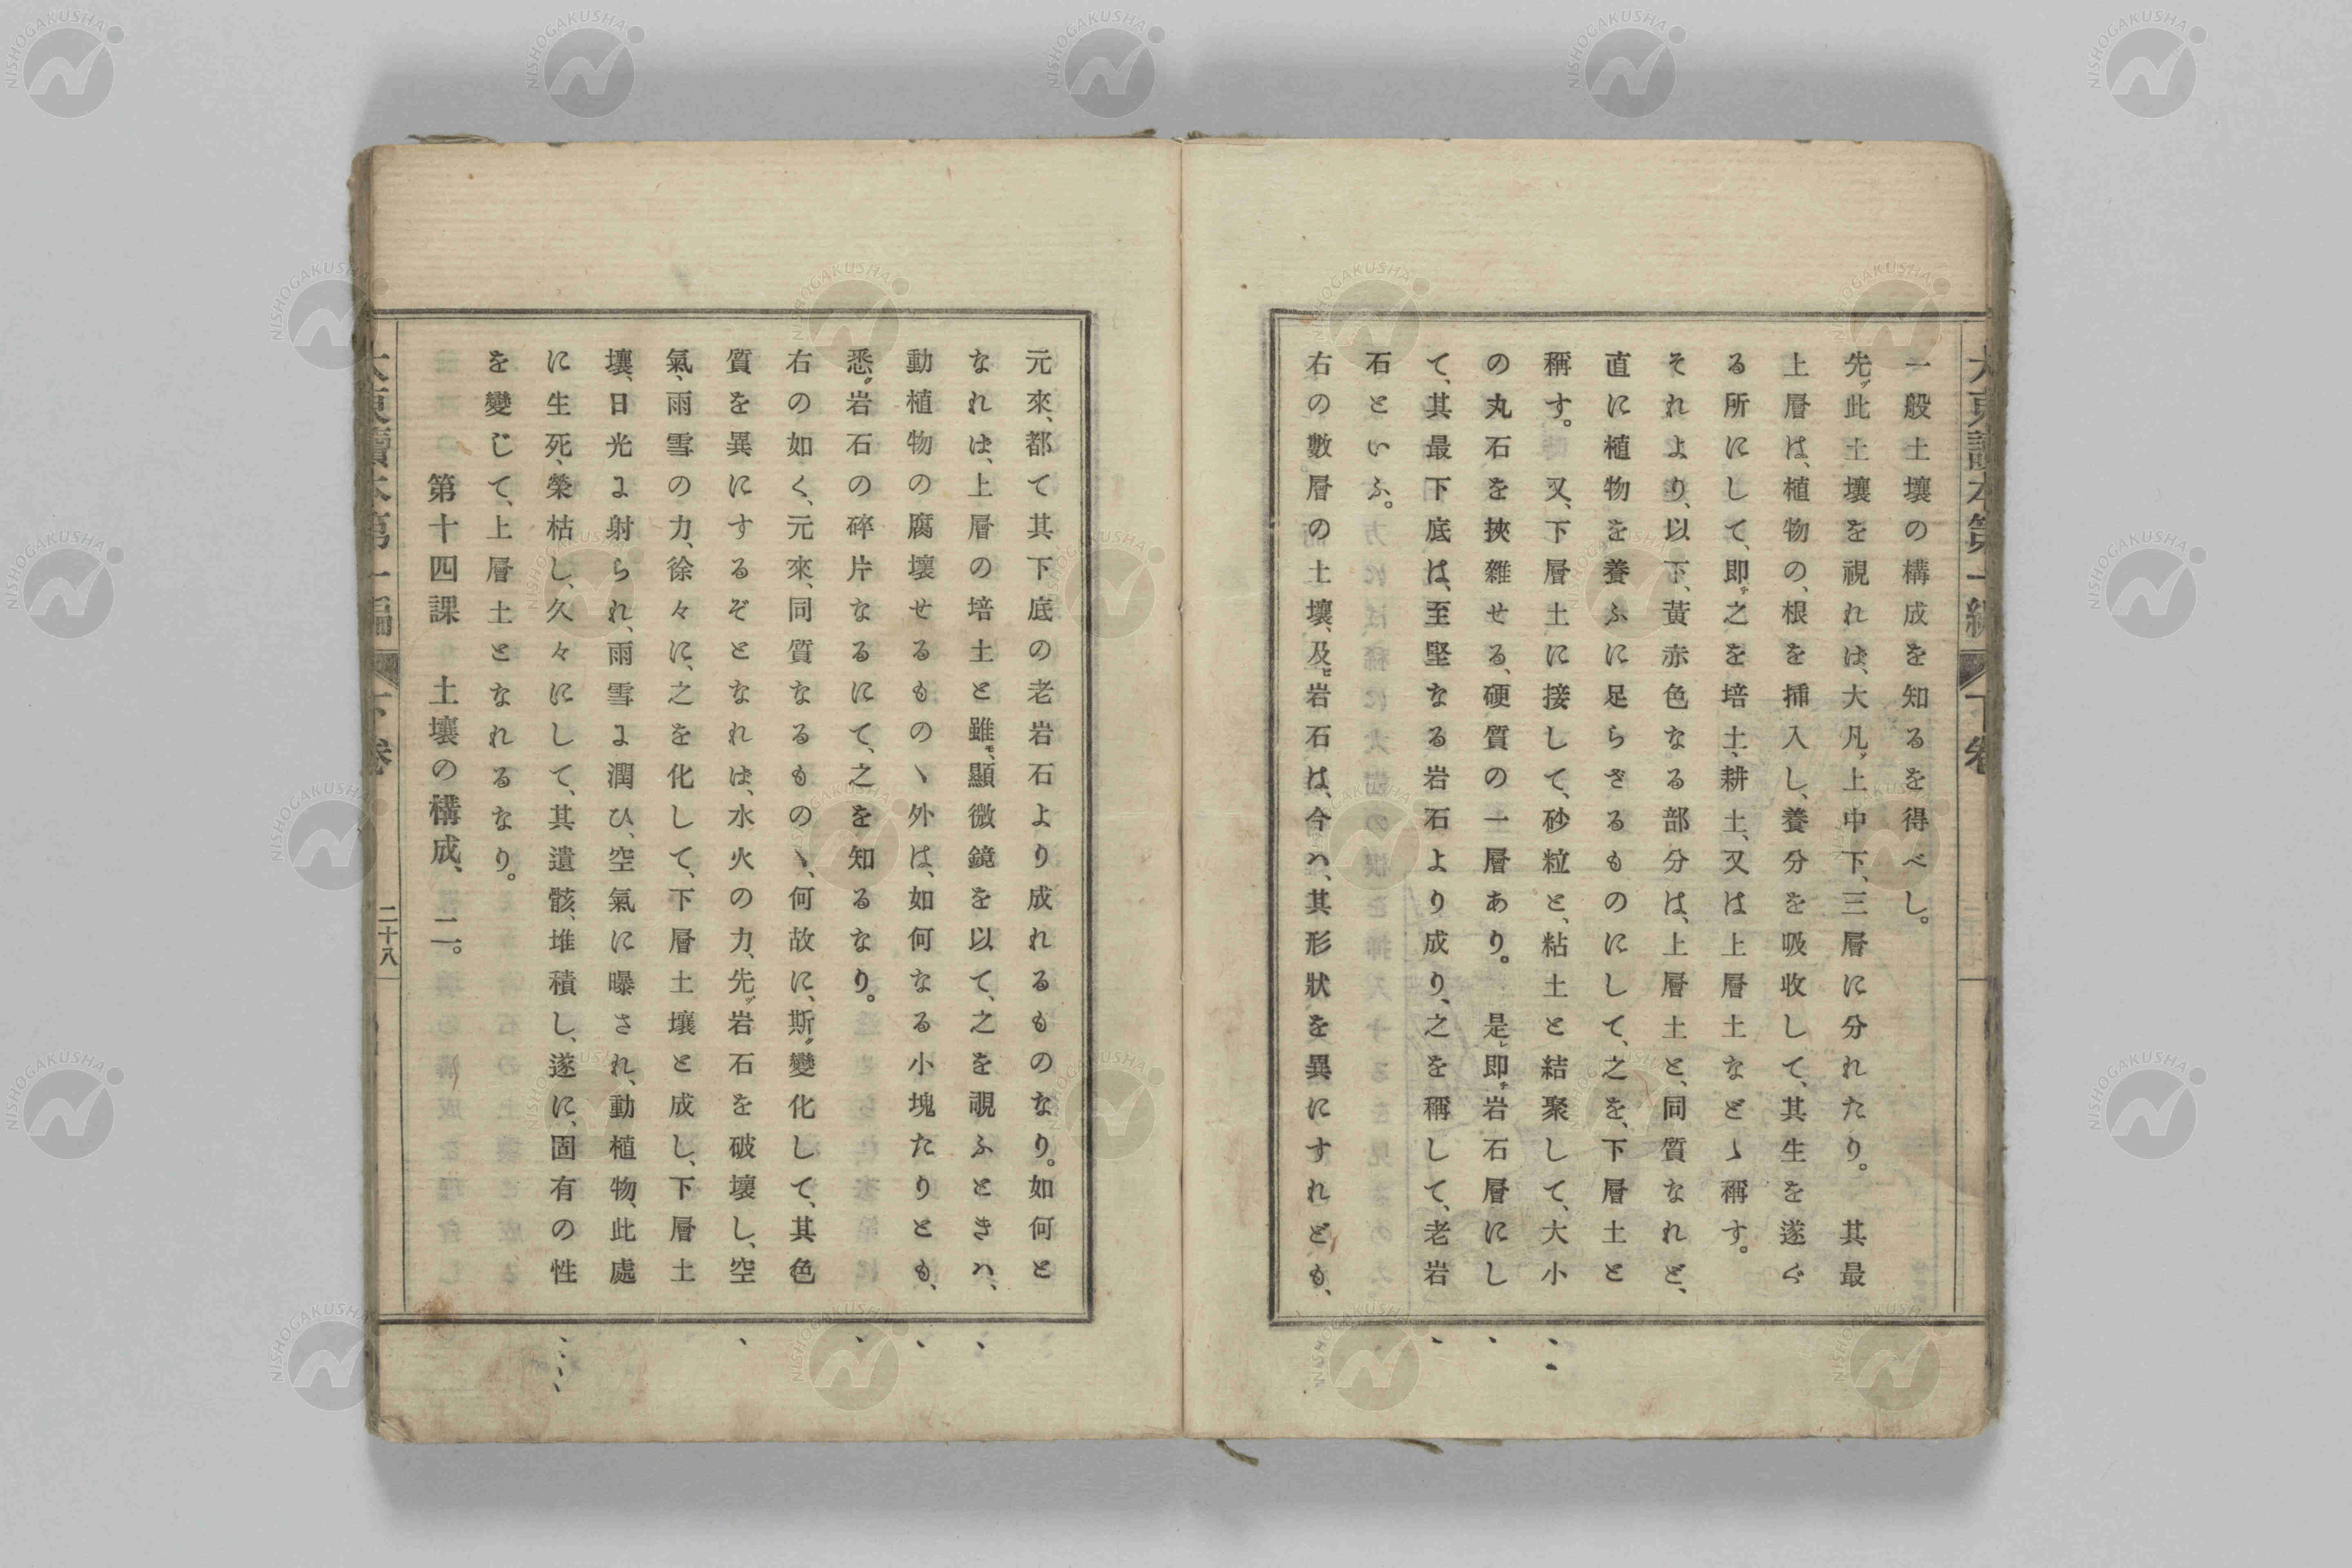 一般土壤の構成を知るを得べし。
先ッ此土壤を視れは、大凡ソ上中下、三層に分れたり。其最
上層は、植物の、根を挿入し、養分を吸收して、其生を遂ぐ
る所にして、即チ之を培土、耕土、又は上層土などゝ稱す。
それより、以下、黃赤色なる部分は、上層土と、同質なれど、
直に植物を養ふに足らざるものにして、之を、下層土と
稱す。又、下層土に接して、砂粒と、粘土と結聚して、大小
の丸石を挾雜せる、硬質の一層あり。是レ即チ岩石層にし
て、其最下底は、至堅なる岩石より成り、之を稱して、老岩
石といふ。
右の數層の土壤、及ヒ岩石は、今ハ、其形狀を異にすれども、
元來、都て其下底の老岩石より成れるものなり。如何と
なれは、上層の培土と雖モ、顯微鏡を以て、之を覗ふときハ、
動植物の腐壞せるものゝ外は、如何なる小塊たりとも、
悉ク岩石の碎片なるにて、之を知るなり。
右の如く、元來、同質なるものゝ、何故に、斯ク變化して、其色
質を異にするぞとなれは、水火の力、先ッ岩石を破壞し、空
氣、雨雪の力、徐々に、之を化して、下層土壤と成し、下層土
壤、日光よ射られ、雨雪よ潤ひ、空氣に曝され、動植物、此處
に生死、榮枯し、久々にして、其遺骸、堆積し、遂に、固有の性
を變じて、上層土となれるなり。
第十四課 土壤の構成、二。
二十八
NISHOGAKUSHA